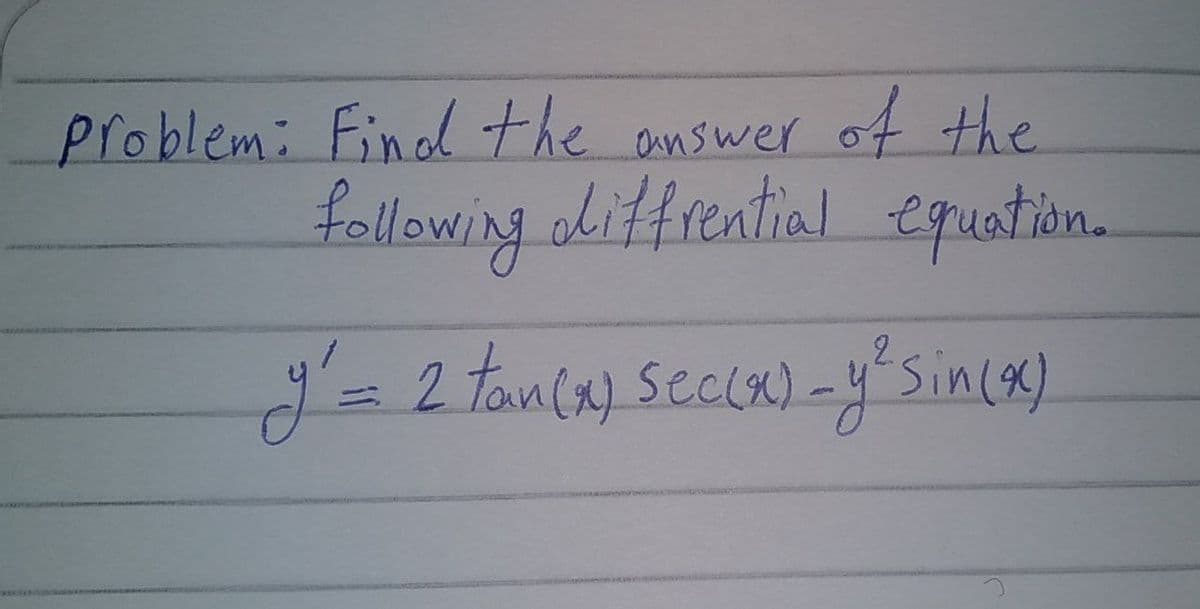 problem: Find the answer of the
following diffrential equation.
y' = 2 tan(x) sec(x) - y² sin(x)